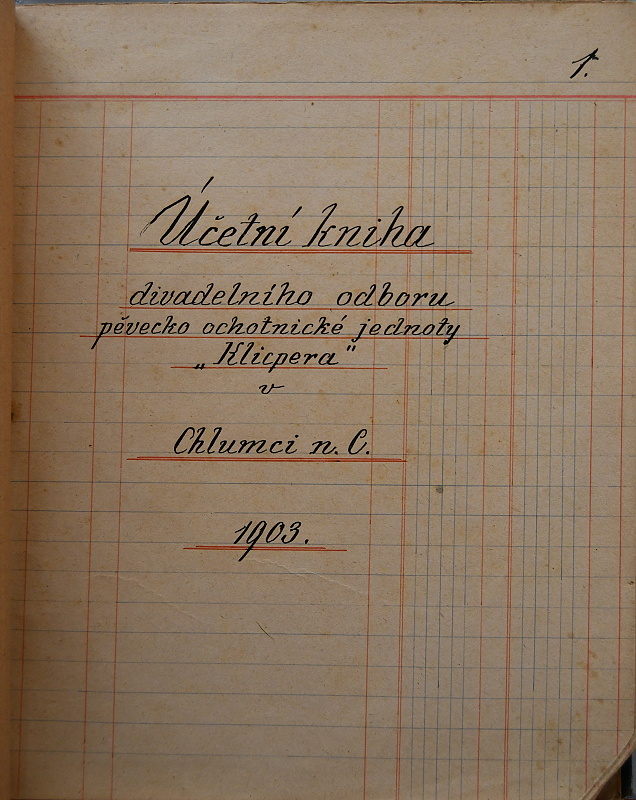 1.
Účetní kniha
divadelního odboru
pěvecko ochotnické jednoty
„Klicpera"
v
Chlumci n. C.
1903.